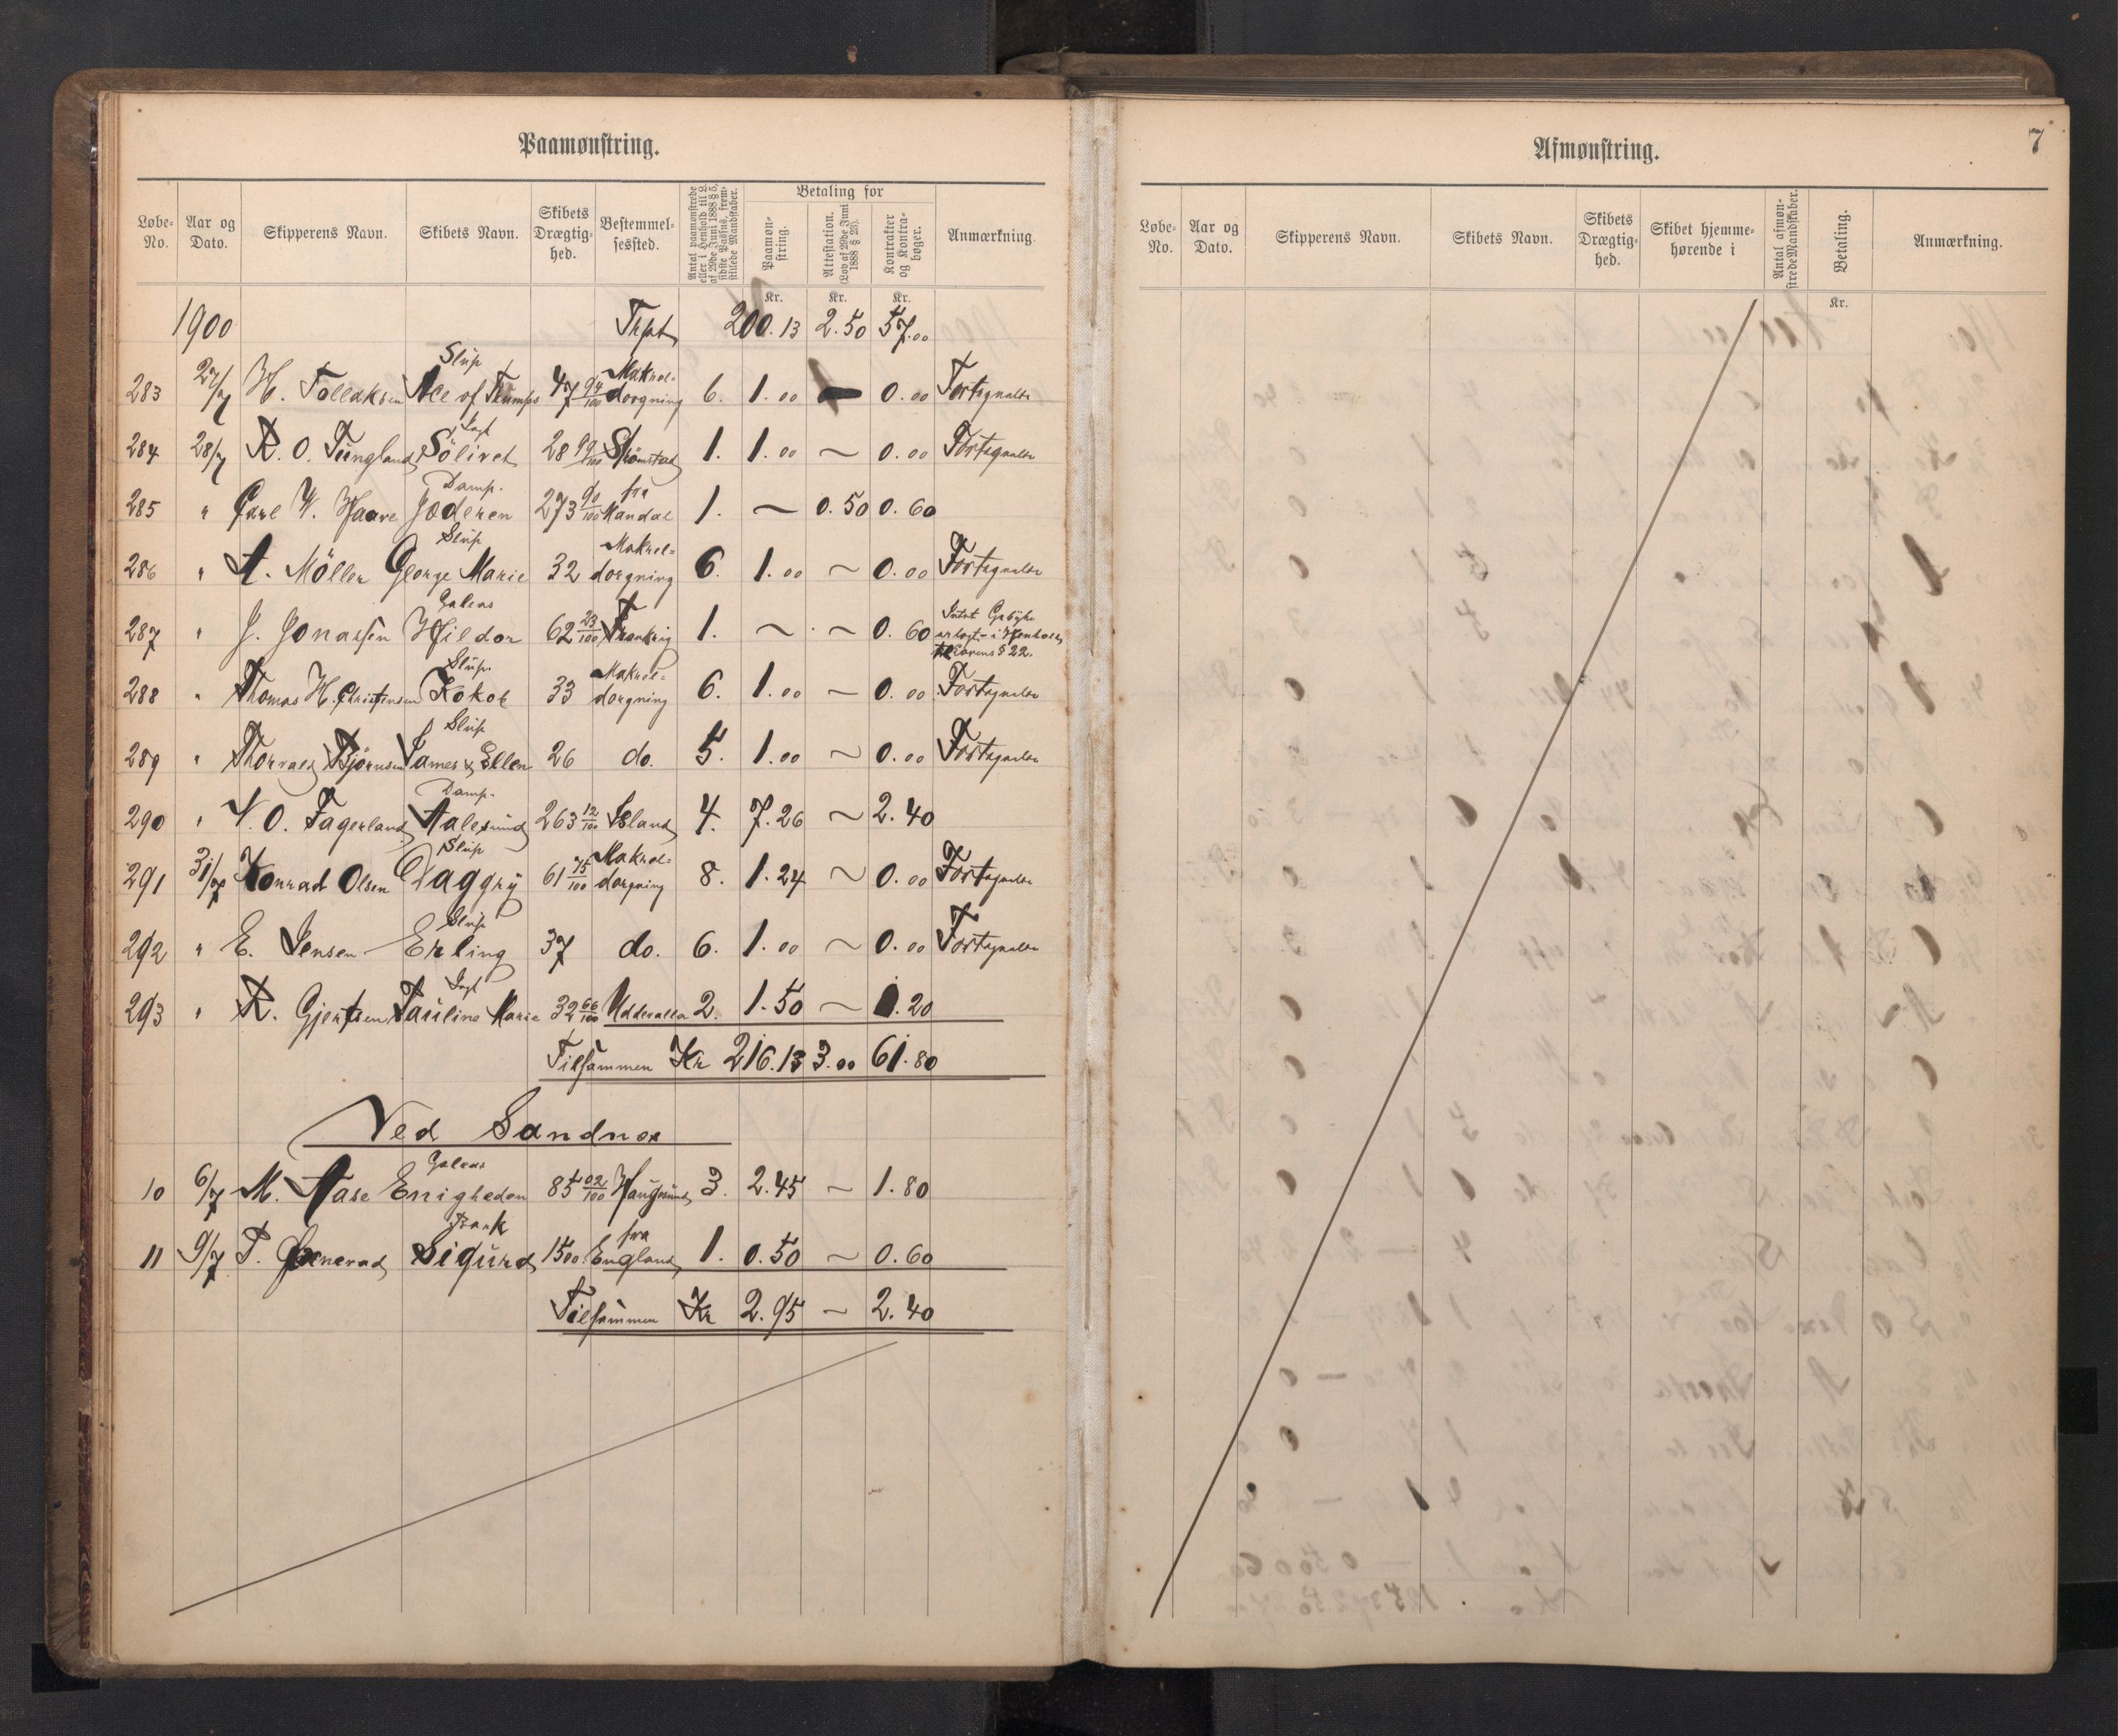 Paamønstring.
Løbe-No. Aar og Dato. Skipperens Navn. Skibets Navn. Skibets Drægtig-hed. Bestemmel-sessted. Antal paamønstrede eller i Henhold til L. af 29de Juni 1888 § 5, sidste Passus, frem-stillede Mandskaber. Betaling for Paamøn-string. Attestation. (Lov af 29de Juni 1888 § 23). Kontrakter og Kontra-bøger. Anmærkning
Kr. Kr. Kr.
1900 Trspt 200.13 2.50 57.00
283 27/7 H. Tollaksen Slup Ace of Trumps 47 94/100 Makrel-dorgning 6. 1.00 — 0.00 Fortegnelse
284 28/7 R. O. Tungland Jagt Sölivet 28 99/100 Strömstad 1. 1.00 ~ 0.00 Fortegnelse
285 " Carl W. Haave Damp. Jæderen 273 90/100 fra Mandal 1. ~ 0.50 0.60
286 " A. Möller Slup George Marie 32 Makrel-dorgning 6. 1.00 ~ 0.00 Fortegnelse
287 " J. Jonassen Galeas Hildor 62 23/100 Frankrig 1. ~ ~ 0.60 Intet Gebyhr erlagt i Henhold til Lovens § 22.
288 " Thomas H. Christensen Slup. Kokot 33 Makrel-dorgning 6. 1.00 ~ 0.00 Fortegnelse
289 " Thorvald Bjørnsen Slup James & Ellen 26 do. 5. 1.00 ~ 0.00 Fortegnelse
290 " N. O. Fagerland Damp. Aalesund 263 12/100 Island 4. 7.26 ~ 2.40
291 31/7 Konrad Olsen Slup Daggry 61 75/100 Makrel-dorgning 8. 1.24 ~ 0.00 Fortegnelse
292 " E. Jensen Slup Erling 37 do. 6. 1.00 ~ 0.00 Fortegnelse
293 " R. Gjertsen Jagt Pauline Marie 32 66/100 Uddevalla 2. 1.50 ~ 1.20
Tilsammen Kr 216.13 3.00 61.80
Ved Sandnes
10 6/7 M. Aase Galeas Enigheden 85 02/100 Haugesund 3. 2.45 ~ 1.80
11 9/7 T. Bark Sigurd 1500 fra England 1. 0.50 ~ 0.60
Tilsammen Kr 2.95 ~ 2.40
Afmønstring.
7
Løbe-No. Aar og Dato. Skipperens Navn. Skibets Navn. Skibets Drægtig-hed. Skibet hjemme-hørende i Antal afmøn-strede Mandskaber. Betaling. Anmærkning.
Kr.